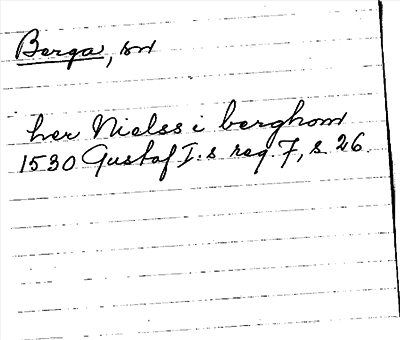 Berga, sn
her Nielss i berghom
1530 Gustaf I:s reg. 7, s. 26.